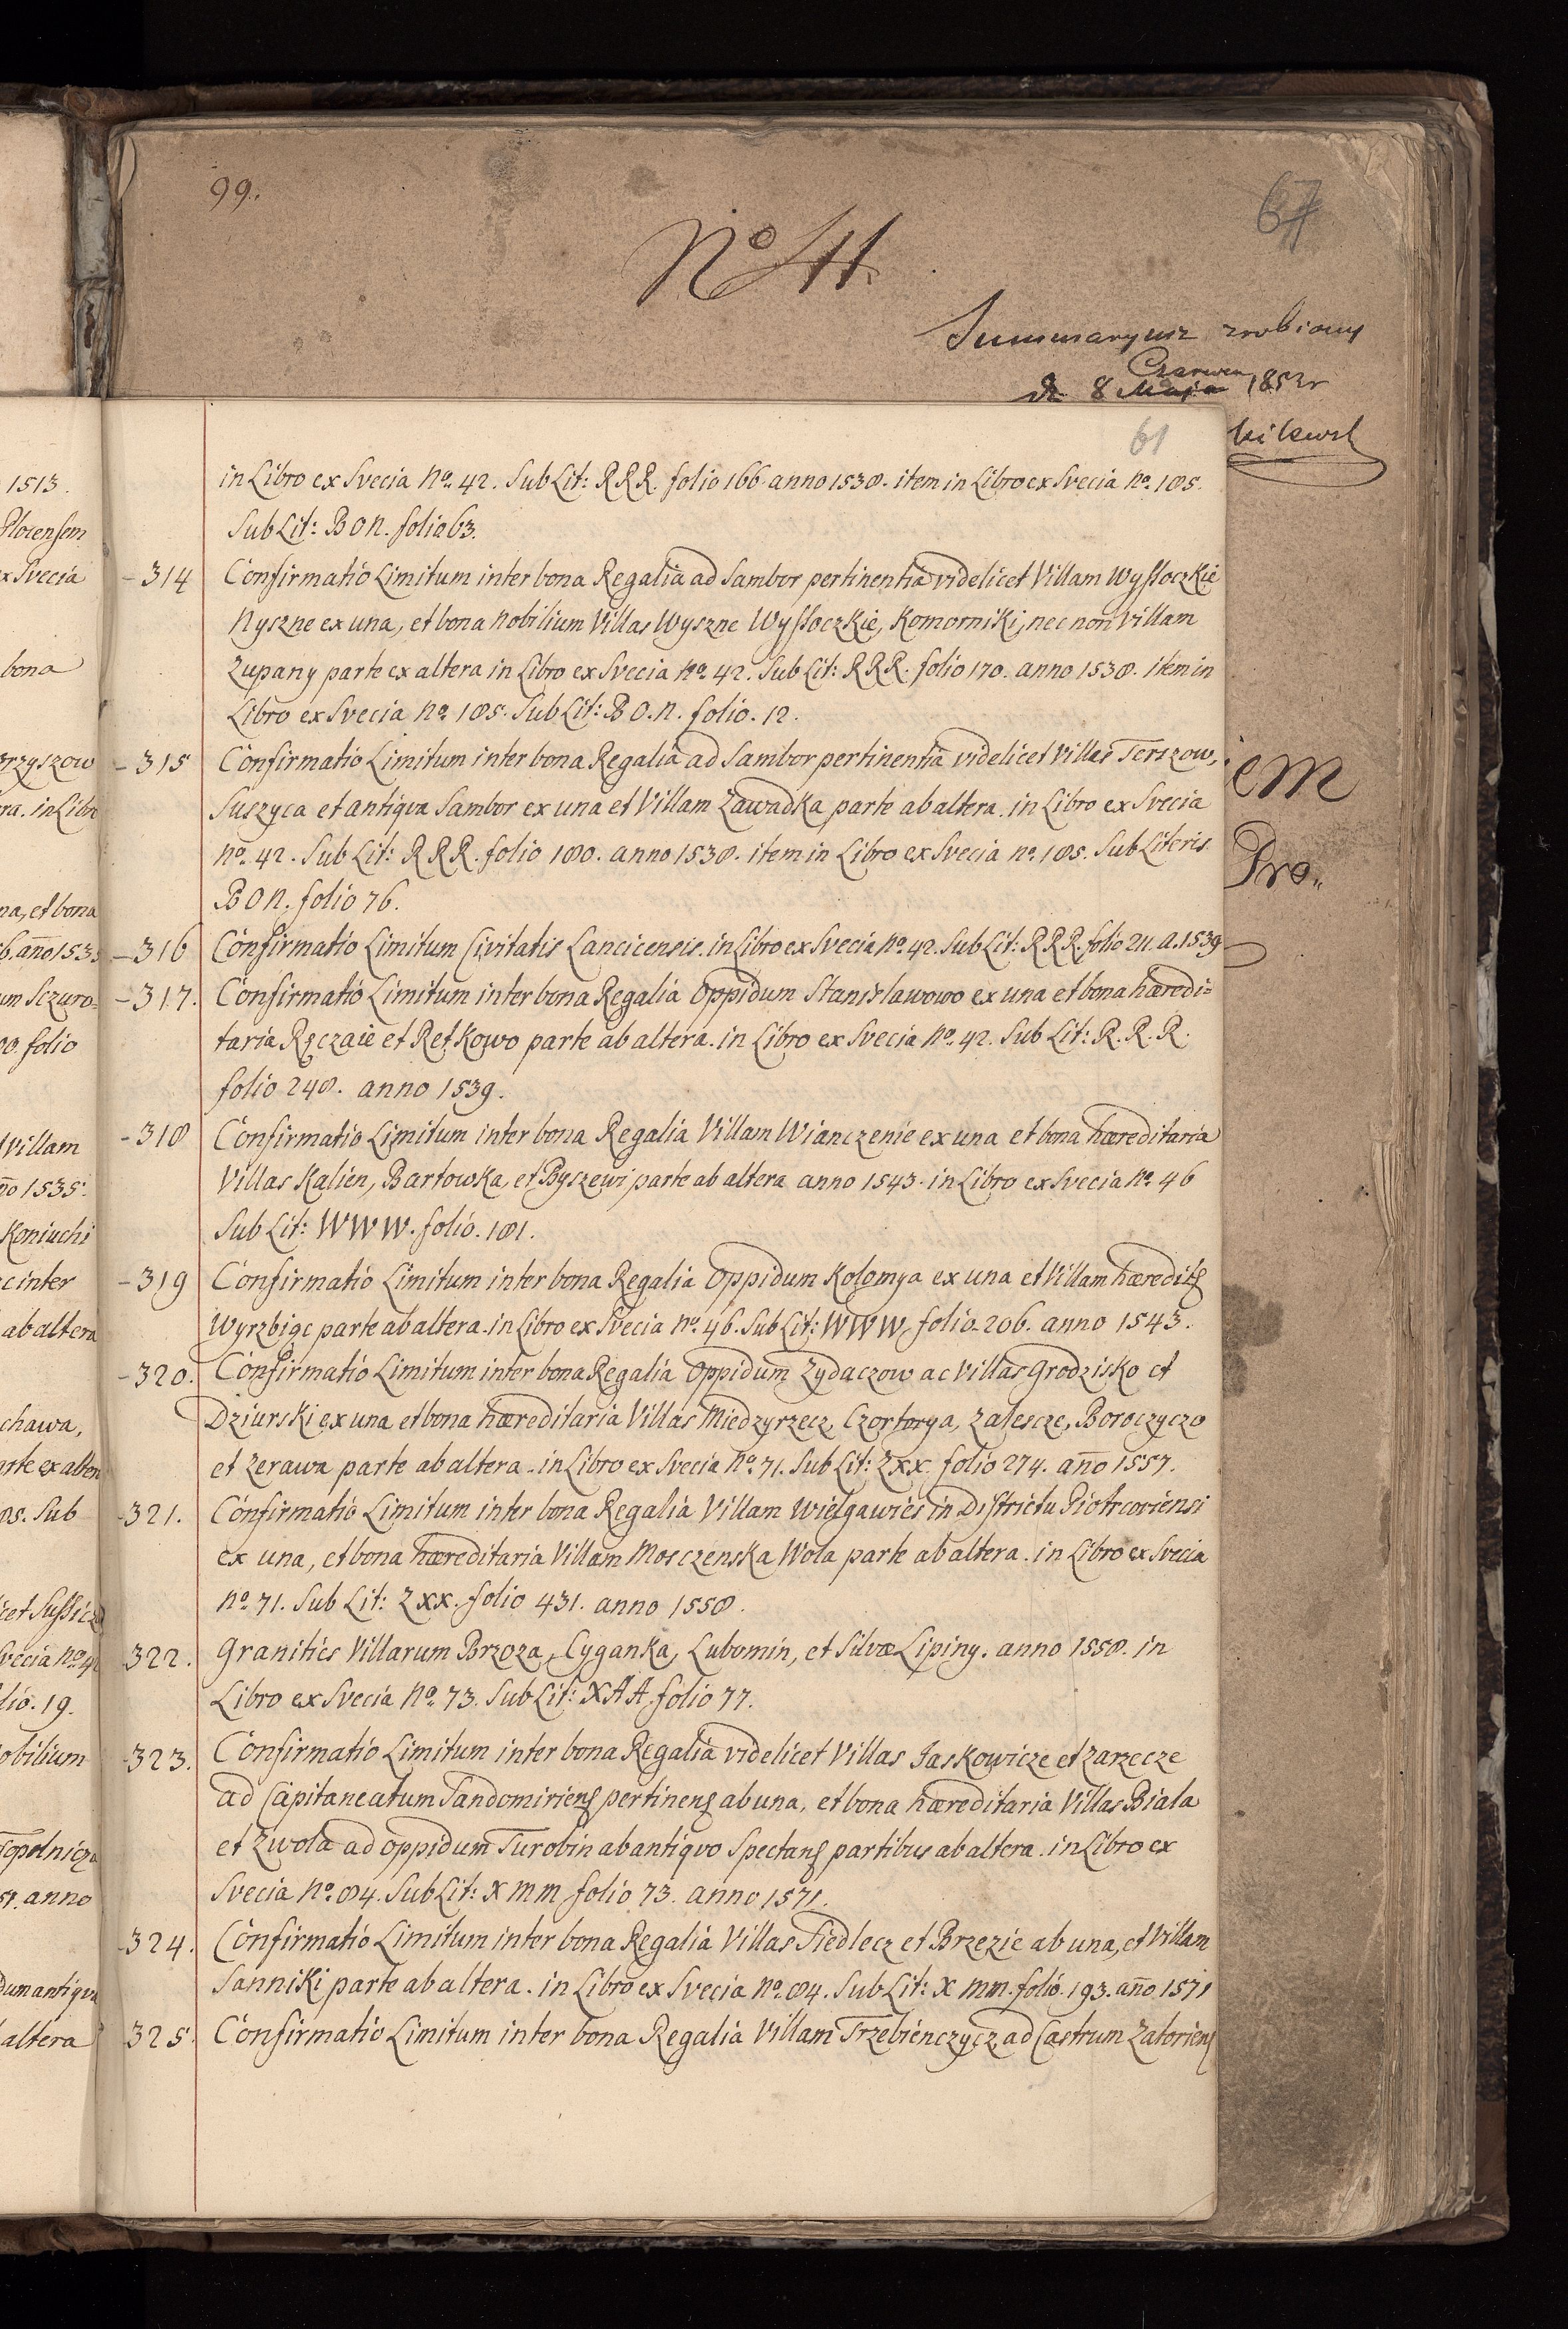 99.
67
No 44.
Summaryusz zrobiony
Czerwca
d. 8 Maja 1852r
61
in Libro ex Svecia No. 42. Sub Lit: RRR. folio 166. anno 1538. item in Libro ex Svecia No. 185.
Sub Lit: BON. folio 63.
- 314 Confirmatio Limitum inter bona Regalia ad Sambor pertinentia videlicet Villam Wyssoczkie
Nyszne ex una, et bona Nobilium Villas Wyszne Wyssoczkie, Komorniki, nec non Villam
Zupany parte ex altera in Libro ex Svecia No. 42. Sub Lit: RRR. folio 170. anno 1538. item in
Libro ex Svecia No. 185. Sub Lit: B O. N. folio. 12.
- 315 Confirmatio Limitum inter bona Regalia ad Sambor pertinentia videlicet Villas Terszow,
Suszyca et antiqva Sambor ex una et Villam Zawadka parte ab altera. in Libro ex Svecia
No. 42. Sub Lit: RRR. folio 180. anno 1538. item in Libro ex Svecia No. 185. Sub Literis
BON. folio 76.
- 316 Confirmatio Limitum Civitatis Lancicensis. in Libro ex Svecia No. 42. Sub Lit: RRR. folio 211. a. 1539
- 317. Confirmatio Limitum inter bona Regalia Oppidum Stanislawowo ex una et bona hæredi=
taria Ręczaie et Retkowo parte ab altera. in Libro ex Svecia No. 42. Sub Lit: R. R. R.
folio 248. anno 1539.
- 318 Confirmatio Limitum inter bona Regalia Villam Wianczenie ex una et bona hæreditaria
Villas Kalien, Bartowska, et Byszewi parte ab altera anno 1543. in Libro ex Svecia No. 46
Sub Lit: WWW. folio. 181.
- 319 Confirmatio Limitum inter bona Regalia Oppidum Kolomya ex una et Villam hæredit
Wyrzbigc parte ab altera. in Libro ex Svecia No. 46. Sub Lit: WWW. folio. 206. anno 1543.
- 320. Confirmatio Limitum inter bona Regalia Oppidum Zydaczow ac Villas Grodzisko et
Dziurski ex una et bona hæreditaria Villas Miedzyrzecz, Czortorya, Zalescze, Boroczyczo
et Zerawa parte ab altera. in Libro ex Svecia No. 71. Sub Lit: ZXX. folio 274. año 1557.
- 321. Confirmatio Limitum inter bona Regalia Villam Wielgawies in Districtu Piotrcoviensi
ex una, et bona hæreditaria Villam Mosczenska Wola parte ab altera. in Libro ex Svecia
No. 71. Sub Lit: ZXX. folio 431. anno 1558.
322. Granities Villarum Brzoza, Cyganka, Lubomin, et Silvæ Lipiny. anno 1558. in
Libro ex Svecia No. 73. Sub Lit: XAA. folio 77.
- 323. Confirmatio Limitum inter bona Regalia videlicet Villas Jaskowicze et Zarzecze
ad Capitaneatum Sandomiriens pertinens ab una, et bona hæreditaria Villas Biala
et Zwola ad oppidum Turobin ab antiqvo Spectans partibus ab altera. in Libro ex
Svecia No. 84. Sub Lit: XMM folio 73. anno 1571.
- 324. Confirmatio Limitum inter bona Regalia Villas Siedlecz et Brzezie ab una, et Villam
Sanniki parte ab altera. in Libro ex Svecia No. 84. Sub Lit: X MM. folio. 193. año 1571
325. Confirmatio Limitum inter bona Regalia Villam Trzebienczycz, ad Castrum Zatoriens
1513.
ex Svecia
bona
na, et bona
Villam
1535.
Koniuchi
inter
ab altera
Sub
lio. 19.
anno
altera
em
Pro.